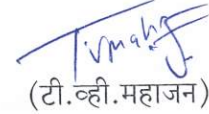 (टी.व्ही.महाजन)